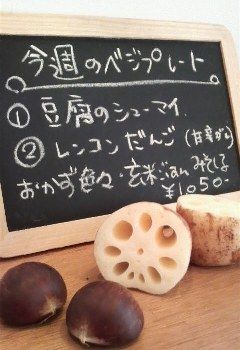 今週のベジプレート
① 豆腐のシューマイ.
② レンコンだんご(甘辛がらめ)
おかず色々・玄米ごはん みそしる
¥1,050-